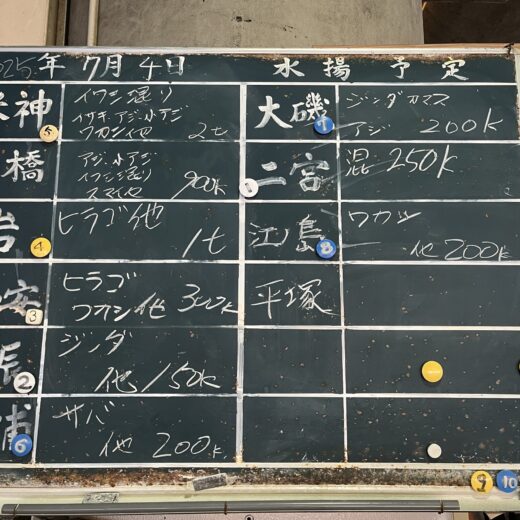 2025年 7月 4日 水揚予定
米神 イワシ混り
イサキ、アジ、小アジ
ワカシ他 2t
5
橋 アジ、小アジ
イワシ混り
スマ他 900k
岩 ヒラゴ他
1t
4
安 ヒラゴ
ワカシ他 300k
3
ジンダ
他 150k
2
サバ
他 200k
6
大磯 ジンダ カマス
アジ 200k
1
二宮 混 250k
江ノ島 ワカシ
他 200k
8
平塚
9 10